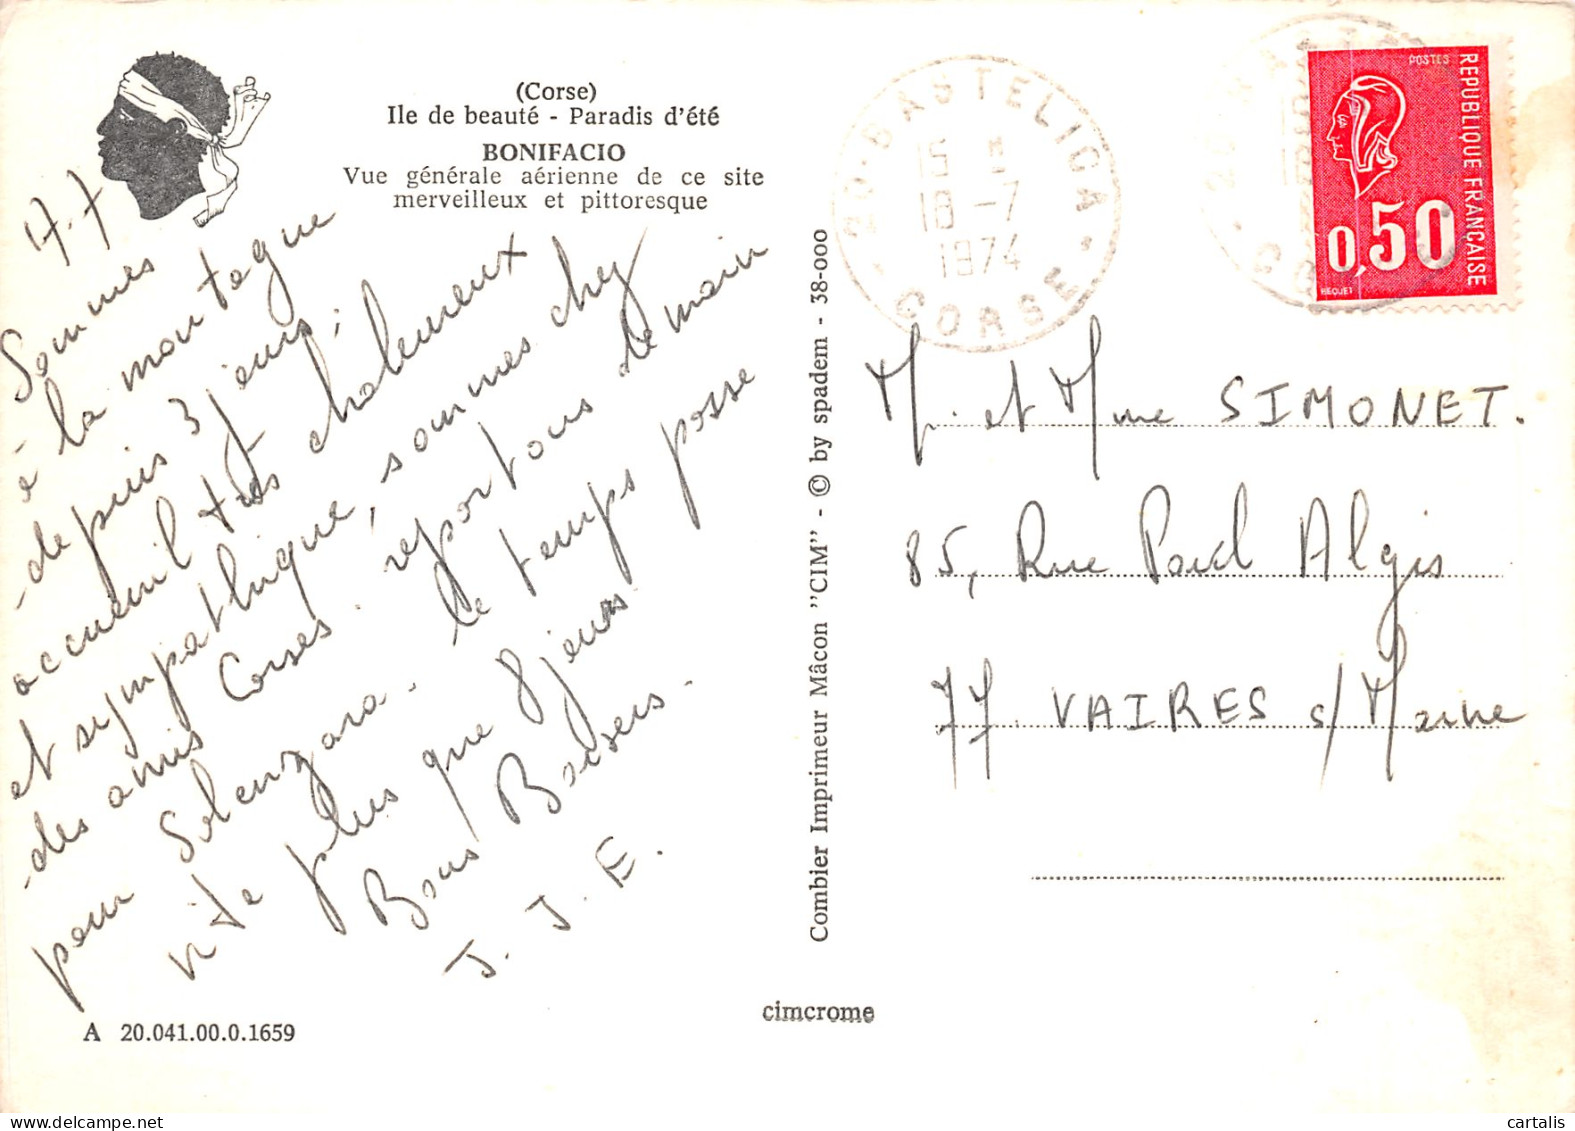 (Corse)
Ile de beauté - Paradis d'été
BONIFACIO
Vue générale aérienne de ce site
merveilleux et pittoresque
17.7
Sommes
à la montagne
depuis 3 jours ;
accueil très chaleureux
et sympathique, sommes chez
des amis Corses. repartons demain
pour Solenzara. le temps passe
vite plus que 8 jours.
Bons Baisers.
J. J. E.
A 20.041.00.0.1659
Combier Imprimeur Mâcon "CIM" - © by spadem - 38-000
cimcrome
20 - BASTELICA
15 H
18 -7
1974
CORSE
POSTES
REPUBLIQUE FRANÇAISE
0,50
BEQUET
M. et Mme SIMONET.
85, Rue Paul Algis
77 VAIRES s/ Marne
delcampe.net
cartalis